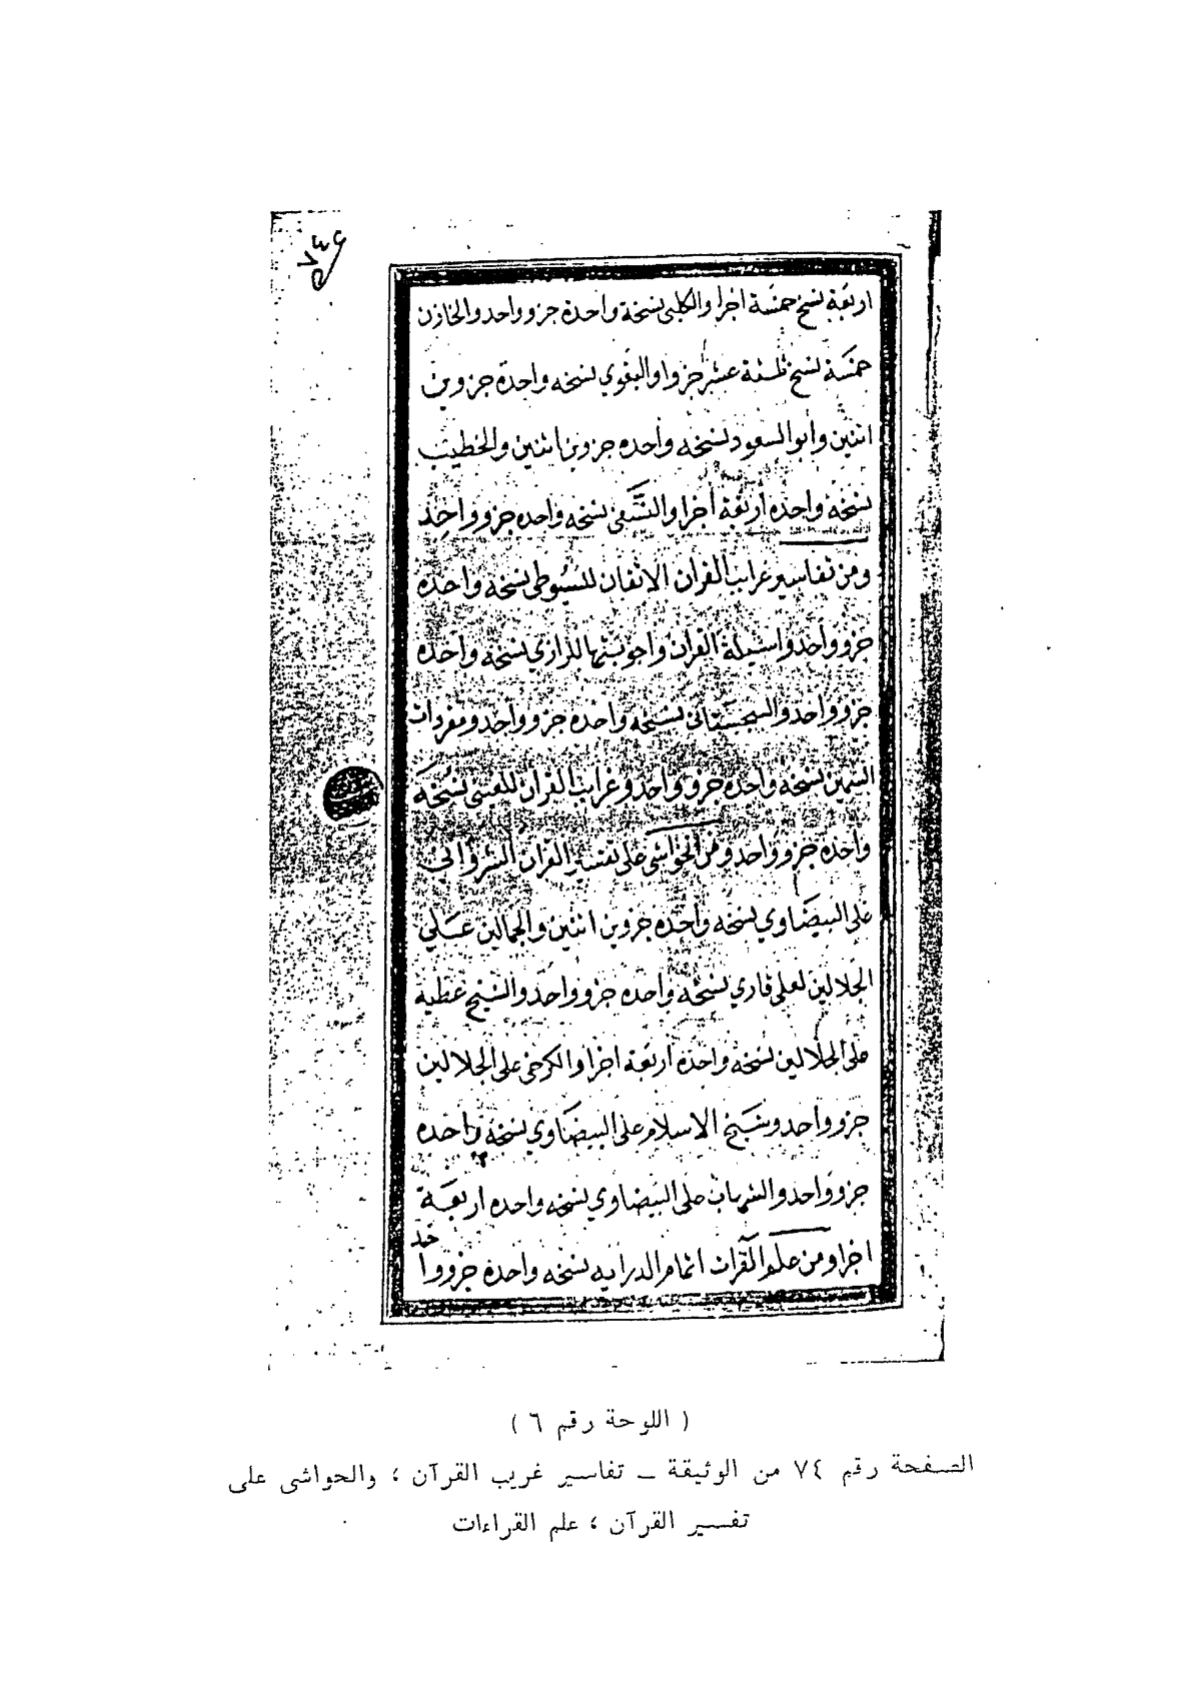 ٧٤
اربعة نسخ خمسة اجزا والكلبى نسخة واحدة جزو واحد والخازن
خمسة نسخ ثلثة عشر جزوا والبغوي نسخه واحدة جزوين
اثنين وابو السعود نسخه واحده جزوين اثنين والخطيب
نسخة واحده اربعة اجزا والنسفى نسخه واحده جزو واحد
ومن تفاسير غرايب القران الاتقان للسيوطى نسخه واحده
جزو واحد واسيلة القران واجوبتها للرازي نسخه واحده
جزو واحد والسجستانى نسخه واحده جزو واحد ومفردات
السمين نسخة واحده جزو واحد وغرايب القران نسخة
واحده جزو واحد ومن الحواشى على تفسير القران
على البيضاوي نسخه واحده جزوين اثنين والجمالين على
الجلالين لعلى قاري نسخه واحده جزو واحد والشيخ عطية
على الجلالين نسخه واحده اربعة اجزا والكرخى على الجلالين
جزو واحد وشيخ الاسلام على البيضاوي نسخة واحده
جزو واحد والشهاب على البيضاوي نسخه واحده اربعة
اجزا ومن علم القرات اتمام الدرايه نسخه واحدة جزو واحد
( اللوحة رقم ٦ )
الصفحة رقم ٧٤ من الوثيقة ــ تفاسير غريب القرآن ؛ والحواشى على
تفسير القرآن ؛ علم القراءات